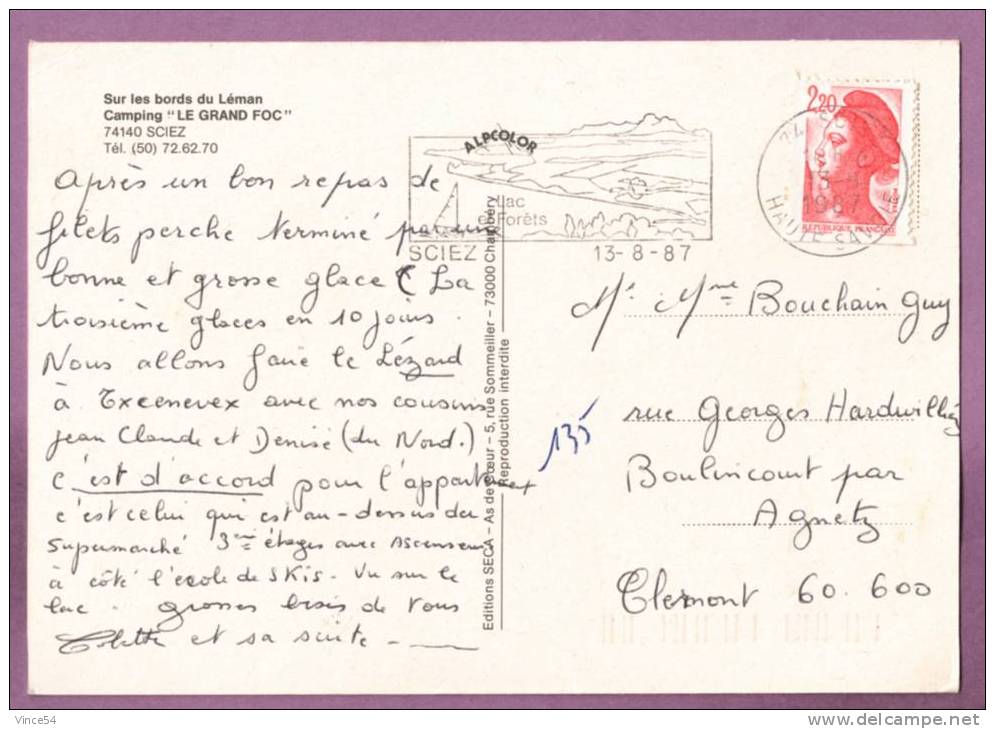 Sur les bords du Léman
Camping "LE GRAND FOC"
74140 SCIEZ
Tél. (50) 72.62.70
Après un bon repas de
filets perche terminé par une
bonne et grosse glace ( La
troisième glaces en 10 jours.
Nous allons faire le Lézard
à Excenevex avec nos cousins
Jean Claude et Denise (du Nord.)
c'est d'accord pour l'appartement
c'est celui qui est au-dessus du
Supermarché 3ème étages avec Ascenseur
à côté l'école de Skis - Vu sur le
lac. grosses bises de tous
et sa suite -
Editions SECA - As de cœur - 5, rue Sommeiller - 73000 Chambéry
Reproduction interdite
ALPCOLOR
Lac
et Forêts
SCIEZ
13-8-87
2,20
REPUBLIQUE FRANÇAISE
1987
HAUTE SAVOIE
Mr Mme Bouchain Guy
135
rue Georges
Boulincourt par
Agnetz
Clermont 60.600
Vince54
delcampe.net